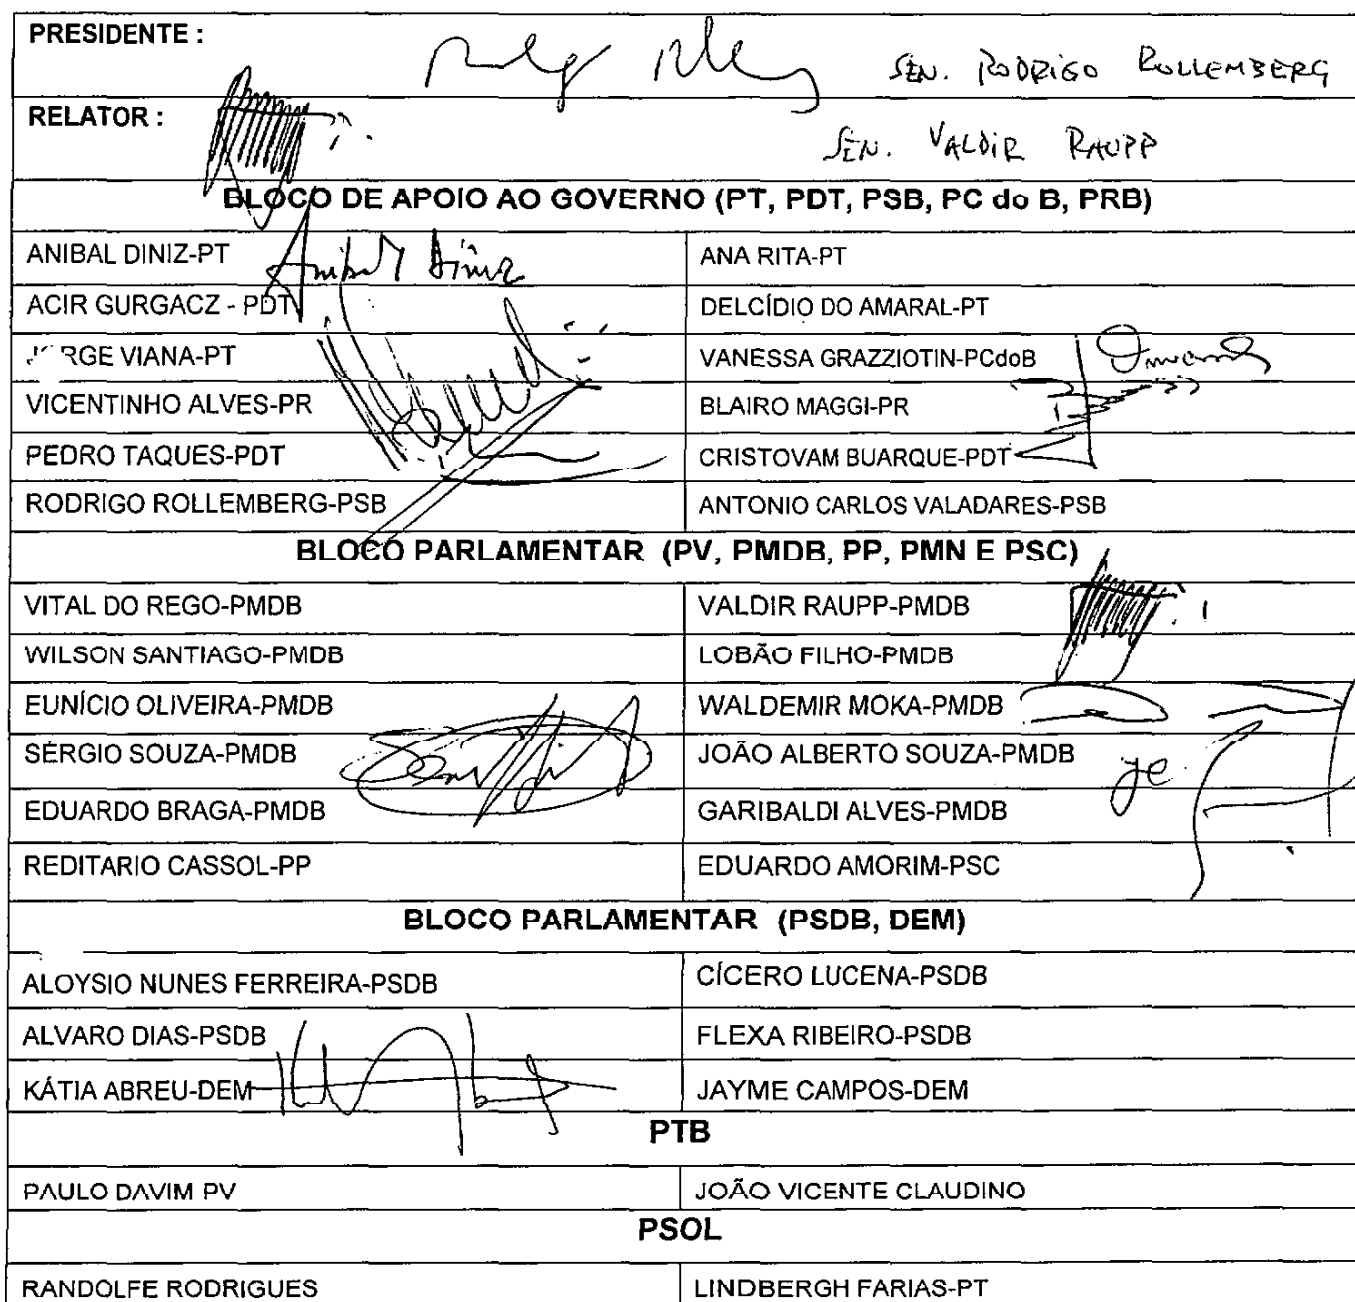 PRESIDENTE :
SEN. RODRIGO ROLLEMBERG
RELATOR :
SEN. VALDIR RAUPP
BLOCO DE APOIO AO GOVERNO (PT, PDT, PSB, PC do B, PRB)
ANIBAL DINIZ-PT Anibal Diniz ANA RITA-PT
ACIR GURGACZ - PDT DELCÍDIO DO AMARAL-PT
JORGE VIANA-PT VANESSA GRAZZIOTIN-PCdoB
VICENTINHO ALVES-PR BLAIRO MAGGI-PR
PEDRO TAQUES-PDT CRISTOVAM BUARQUE-PDT
RODRIGO ROLLEMBERG-PSB ANTONIO CARLOS VALADARES-PSB
BLOCO PARLAMENTAR (PV, PMDB, PP, PMN E PSC)
VITAL DO REGO-PMDB VALDIR RAUPP-PMDB
WILSON SANTIAGO-PMDB LOBÃO FILHO-PMDB
EUNÍCIO OLIVEIRA-PMDB WALDEMIR MOKA-PMDB
SÉRGIO SOUZA-PMDB JOÃO ALBERTO SOUZA-PMDB
EDUARDO BRAGA-PMDB GARIBALDI ALVES-PMDB
REDITARIO CASSOL-PP EDUARDO AMORIM-PSC
BLOCO PARLAMENTAR (PSDB, DEM)
ALOYSIO NUNES FERREIRA-PSDB CÍCERO LUCENA-PSDB
ALVARO DIAS-PSDB FLEXA RIBEIRO-PSDB
KÁTIA ABREU-DEM JAYME CAMPOS-DEM
PTB
PAULO DAVIM PV JOÃO VICENTE CLAUDINO
PSOL
RANDOLFE RODRIGUES LINDBERGH FARIAS-PT